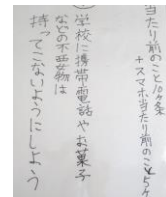 当たり前のこと10ヶ条
+スマホ当たり前のこと5ヶ
学校に携帯電話やお菓子
などの不要物は
持ってこないようにしよう